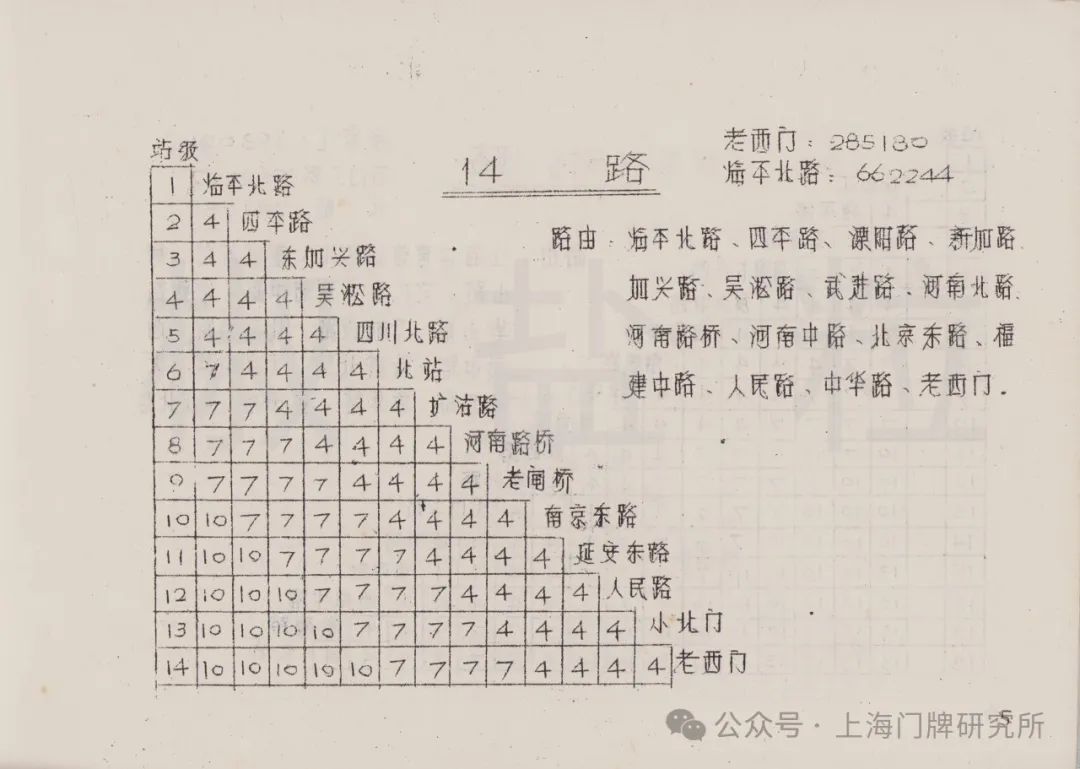 站级
14 路
老西门：285180
临平北路：662244
路由：临平北路、四平路、溧阳路、新加路
加兴路、吴淞路、武进路、河南北路
河南路桥、河南中路、北京东路、福
建中路、人民路、中华路、老西门．
1 临平北路
2 4 四平路
3 4 4 东加兴路
4 4 4 4 吴淞路
5 4 4 4 4 四川北路
6 7 4 4 4 4 北站
7 7 7 4 4 4 4 扩沽路
8 7 7 7 4 4 4 4 河南路桥
9 7 7 7 7 4 4 4 4 老闸桥
10 10 7 7 7 7 4 4 4 4 南京东路
11 10 10 7 7 7 7 4 4 4 4 延安东路
12 10 10 10 7 7 7 7 4 4 4 4 人民路
13 10 10 10 10 7 7 7 7 4 4 4 4 小北门
14 10 10 10 10 10 7 7 7 7 4 4 4 4 老西门
5
公众号·上海门牌研究所